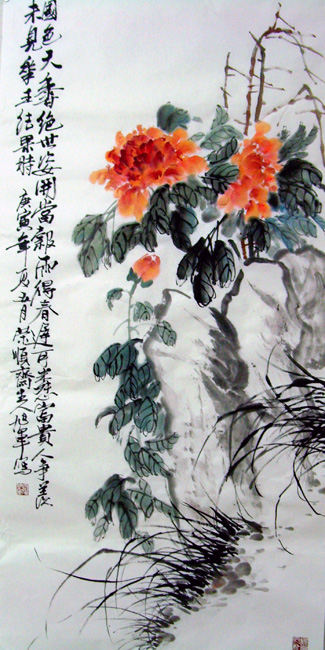 國色天香絕世姿開當穀雨得春遲可堪富貴人爭羨
未見華王結果時 庚寅年夏五月榮順齋主人旭軍寫